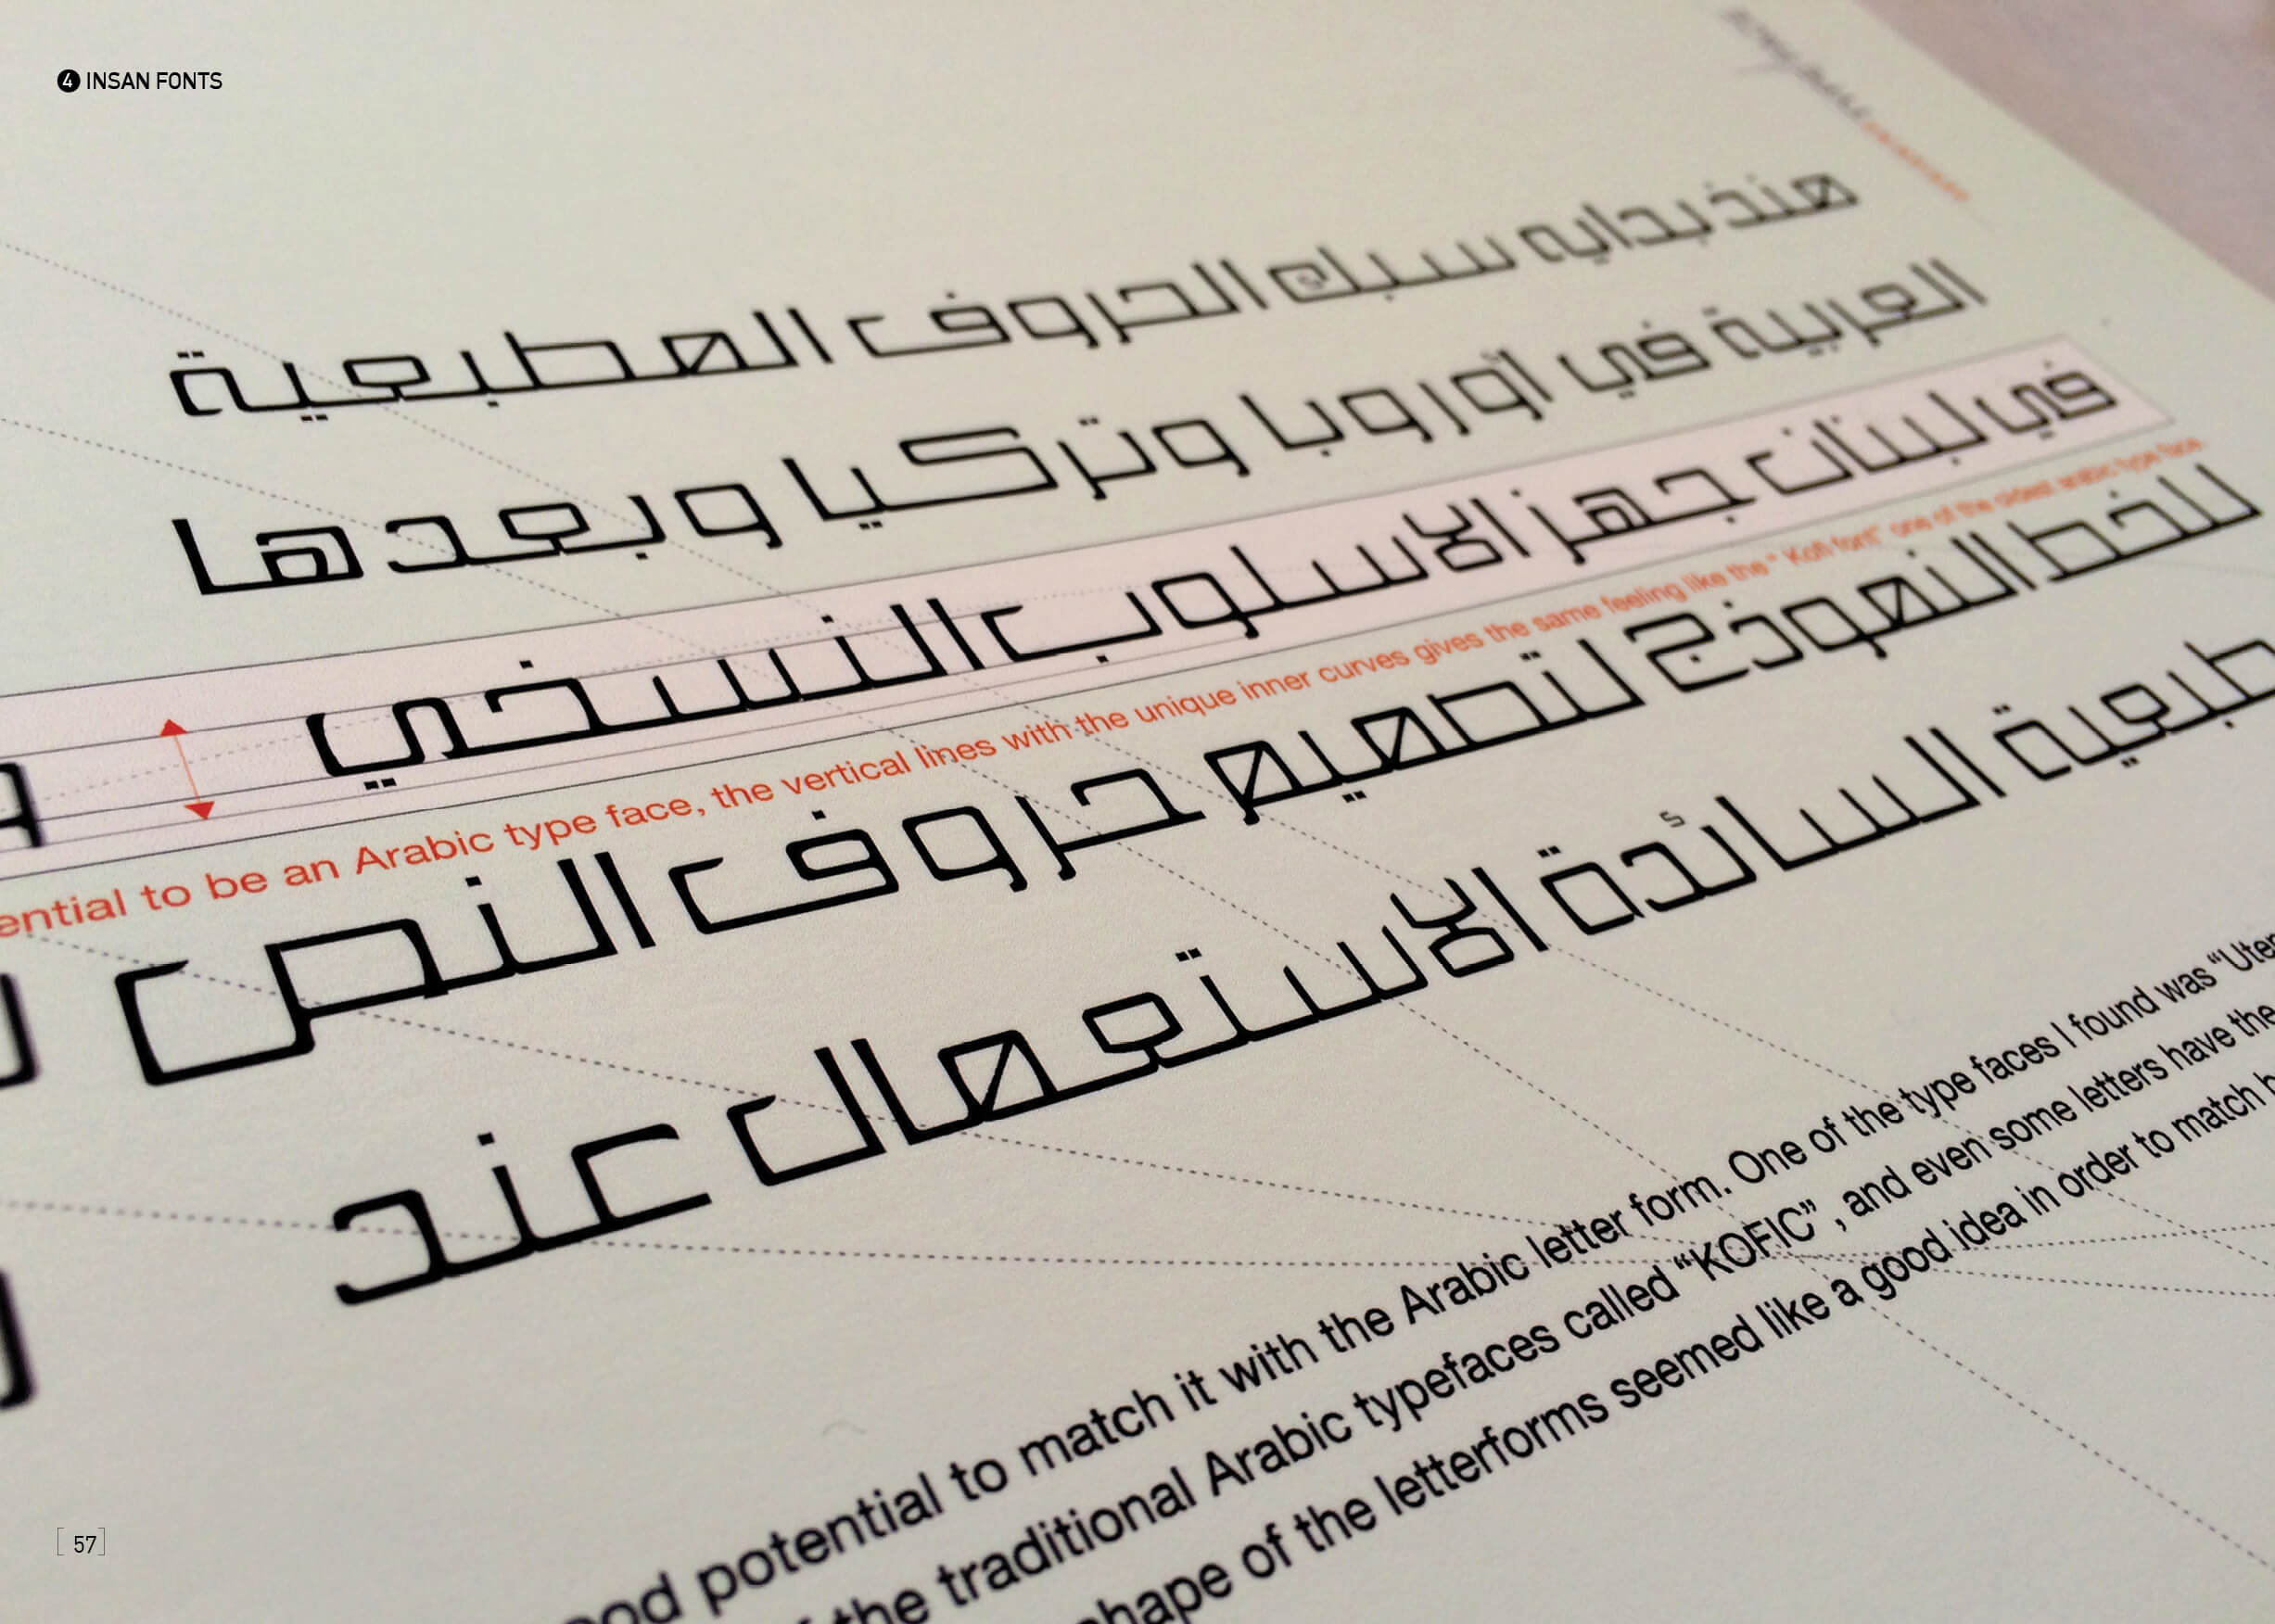 4 INSAN FONTS
منذ بدايه سبك الحروف المطبعية
العربية في أوروبا وتركيا وبعدها
في لبنان جهز الاسلوب النسخي
ential to be an Arabic type face, the vertical lines with the unique inner curves gives the same feeling like the " Kofi font" one of the oldest arabic type face.
للخط النموذج لتصميم حروف النص
طبعية السائدة الاستعمال عند
ood potential to match it with the Arabic letter form. One of the type faces I found was “Uter
f the traditional Arabic typefaces called “KOFIC” , and even some letters have the
hape of the letterforms seemed like a good idea in order to match b
[ 57]